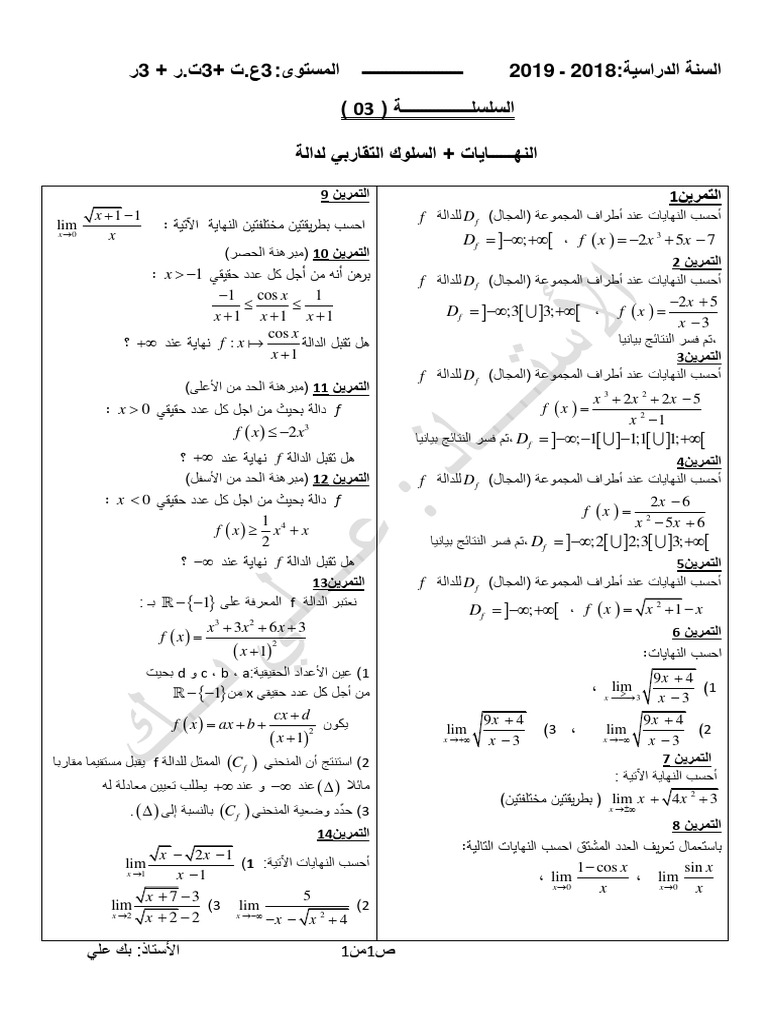 السنة الدراسية:2018 - 2019 ــــــــــــــ المستوى:3ع.ت +3ت.ر + 3ر
السلسلـــــــــــــة ( 03 )
النهـــــايات + السلوك التقاربي لدالة
التمرين1
أحسب النهايات عند أطراف المجموعة (المجال) D_f للدالة f
D_f = ]−∞;+∞[ ، f(x) = −2x³ + 5x − 7
التمرين 2
أحسب النهايات عند أطراف المجموعة (المجال) D_f للدالة f
D_f = ]−∞;3[∪]3;+∞[ ، f(x) = (−2x + 5)/(x − 3)
،ثم فسر النتائج بيانيا
التمرين3
أحسب النهايات عند أطراف المجموعة (المجال) D_f للدالة f
f(x) = (x³ + 2x² + 2x − 5)/(x² − 1)
D_f = ]−∞;−1[∪]−1;1[∪]1;+∞[ ،ثم فسر النتائج بيانيا
التمرين4
أحسب النهايات عند أطراف المجموعة (المجال) D_f للدالة f
f(x) = (2x − 6)/(x² − 5x + 6)
D_f = ]−∞;2[∪]2;3[∪]3;+∞[ ،ثم فسر النتائج بيانيا
التمرين5
أحسب النهايات عند أطراف المجموعة (المجال) D_f للدالة f
D_f = ]−∞;+∞[ ، f(x) = √(x² + 1) − x
التمرين 6
احسب النهايات:
1) lim x→3 (>) √((9x + 4)/(x − 3)) ،
2) lim x→−∞ √((9x + 4)/(x − 3)) ، 3) lim x→+∞ √((9x + 4)/(x − 3))
التمرين 7
أحسب النهاية الآتية :
lim x→±∞ x + √(4x² + 3) ( بطريقتين مختلفتين)
التمرين 8
باستعمال تعريف العدد المشتق احسب النهايات التالية:
lim x→0 (sin x)/x ، lim x→0 (1 − cos x)/x ،
التمرين 9
احسب بطريقتين مختلفتين النهاية الآتية : lim x→0 (√(x + 1) − 1)/x
التمرين 10 (مبرهنة الحصر)
برهن أنه من أجل كل عدد حقيقي x > −1 :
−1/(x + 1) ≤ (cos x)/(x + 1) ≤ 1/(x + 1)
هل تقبل الدالة f : x ↦ (cos x)/(x + 1) نهاية عند +∞ ؟
التمرين 11 (مبرهنة الحد من الأعلى)
f دالة بحيث من اجل كل عدد حقيقي x > 0 :
f(x) ≤ −2x³
هل تقبل الدالة f نهاية عند +∞ ؟
التمرين 12 (مبرهنة الحد من الأسفل)
f دالة بحيث من اجل كل عدد حقيقي x < 0 :
f(x) ≥ (1/2)x⁴ + x
هل تقبل الدالة f نهاية عند −∞ ؟
التمرين13
نعتبر الدالة f المعرفة على ℝ−{−1} بـ :
f(x) = (x³ + 3x² + 6x + 3)/(x + 1)²
1) عين الأعداد الحقيقية:a ، b ، c و d بحيث
من أجل كل عدد حقيقي x من ℝ−{−1}
يكون f(x) = ax + b + (cx + d)/(x + 1)²
2) استنتج أن المنحني (C_f) الممثل للدالة f يقبل مستقيما مقاربا
مائلا (Δ) عند −∞ و عند +∞ يطلب تعيين معادلة له
3) حدّد وضعية المنحني (C_f) بالنسبة إلى (Δ) .
التمرين14
أحسب النهايات الآتية: 1) lim x→1 (√x − √(2x − 1))/(x − 1)
2) lim x→−∞ 5/(−x − √(x² + 4)) 3) lim x→2 (√(x + 7) − 3)/(√(x + 2) − 2)
ص1من1
الأستاذ: بك علي
الأستـــاذ : عـــلي بـــك